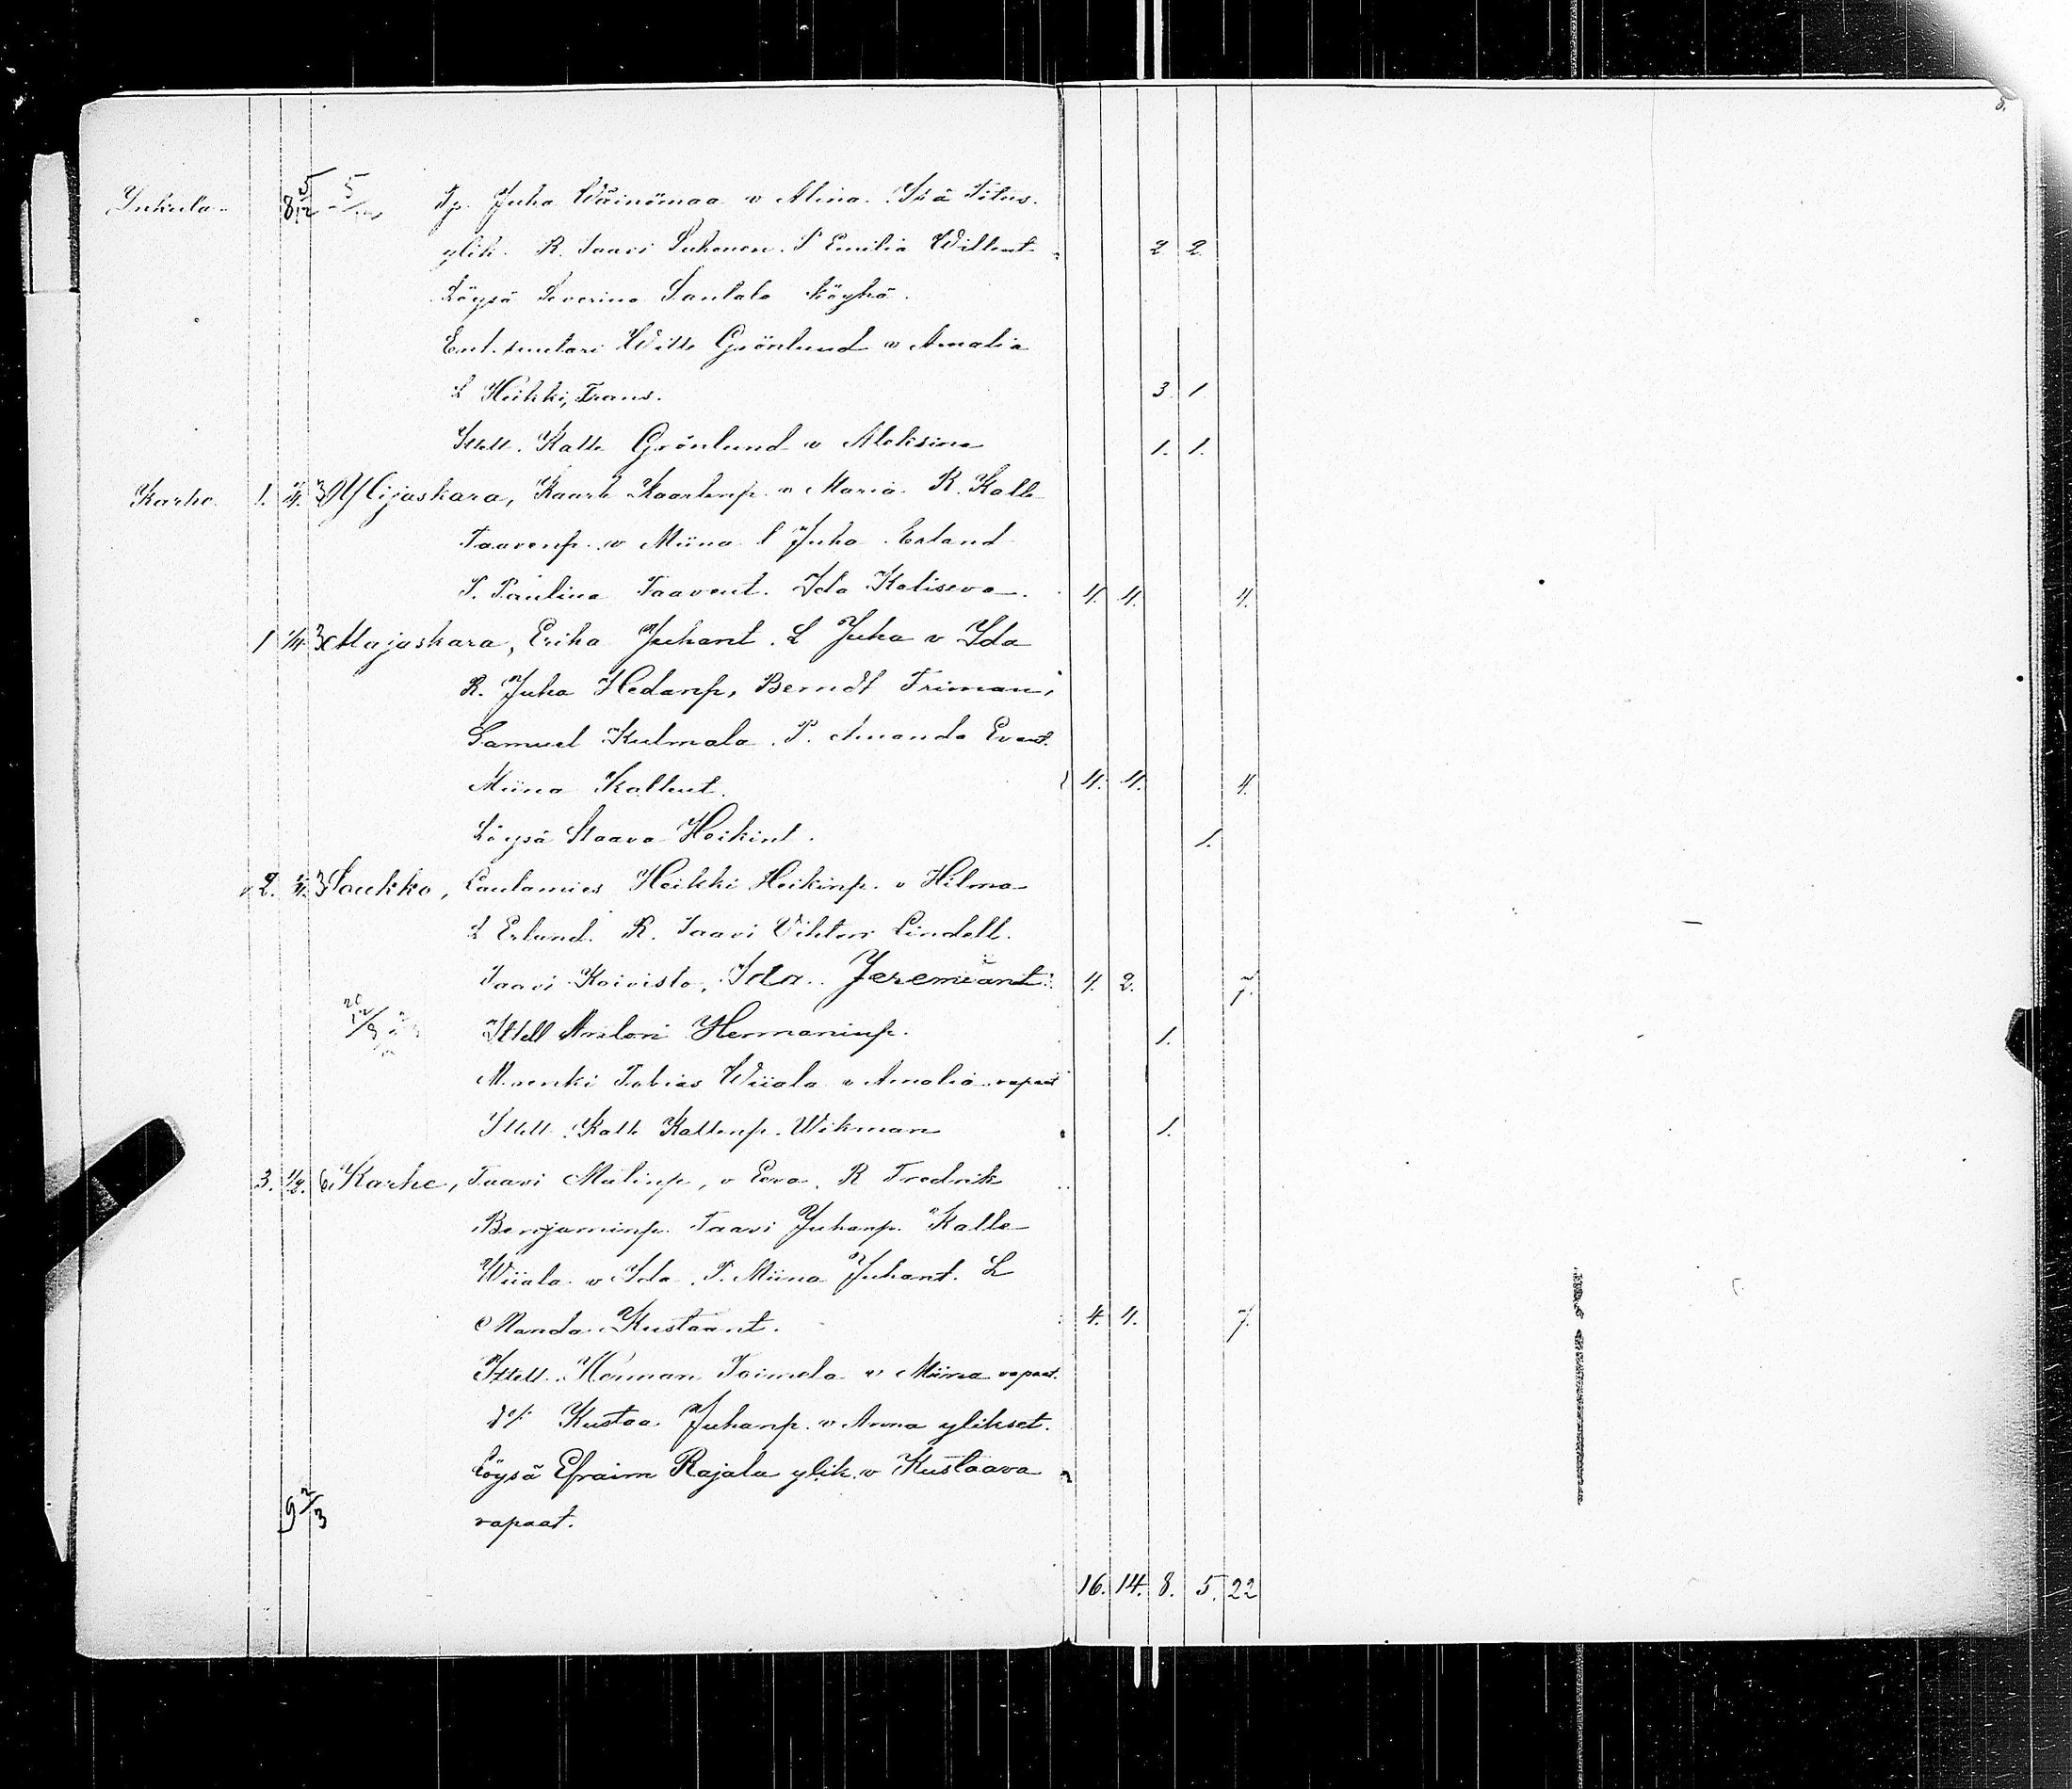 5.
Inkula 8 5/12 5/12 Tp. Juha Wäinömaa v Alina. Isä Titus.
ylik. R. Taavi Suhonen. P Emilia Willent. 2 2
Löysä Severina Santala köyhä.
Ent. Wille Grönlund v Amalia
L Heikki, Frans. 3 1.
Ittell. Kalle Grönlund v Aleksina 1. 1.
Karhe. 1. 1/4. 3 Ylijaskara, Kaarle Kaarlenp. v Maria. R. Kalle
Taavenp. v Miina l Juha Erland
P. Paulina Taavent. Ida Kalisevo. 4. 4. 4.
1 1/4. 3 Alajaskara, Erika Juhant. L Juha v Ida
R. Juha Hedanp, Berndt Friman,
Samuel Kulmala. P. Amanda Evant.
Miina Kallent. 4. 4. 4.
Löysä Staava Heikint. 1.
2. 1/4. 3 Soukko, Lautamies Heikki Heikinp. v Hilma
L Erland. R. Taavi Vihtori Lindell.
Taavi Koivisto, Ida Jeremiänt. 4. 2. 7.
Ittell Anshelm Hermaninp. 1.
Muonki Tobias Wiiala v Amalia vapaat
Ittell. Kalle Kallenp. Wikman 1.
3. 1/2. 6 Karhe, Taavi Matinp, v Eeva. R Fredrik
Benjaminp. Taavi Juhanp. Kalle
Wiiala v Ida. P. Miina Juhant. L
Manda Kustaant. 4. 4. 7.
Ittell. Herman Toimela v Miina vapaat.
d:o Kustaa Juhanp. v Anna ylikset.
Löysä Efraim Rajala ylik. v Kustaava
9 2/3 vapaat.
16. 14. 8. 5. 22